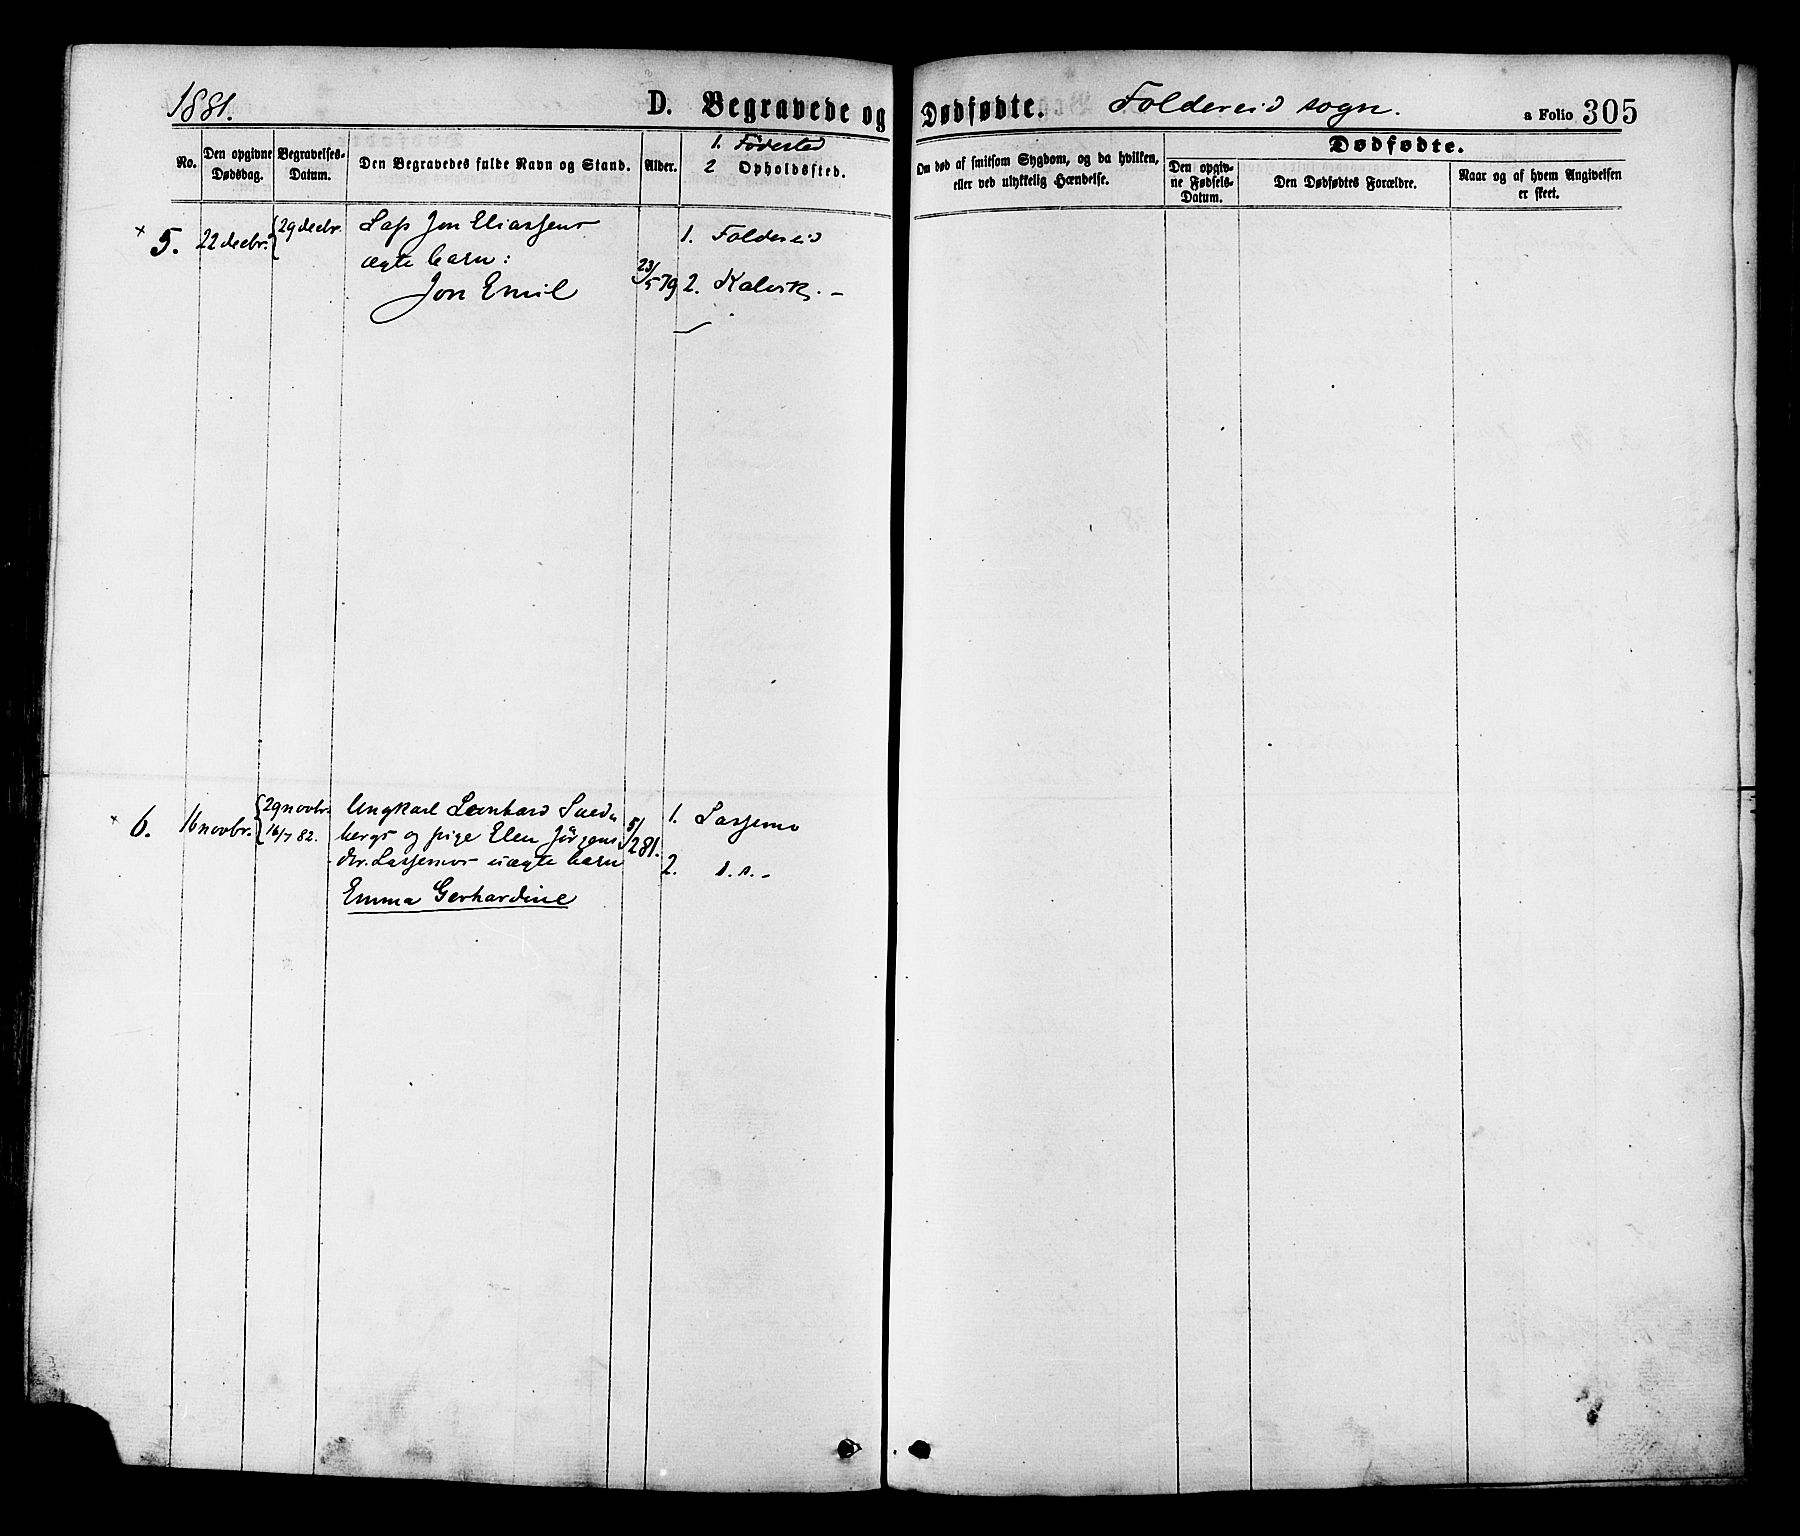 1881.
D. Begravede og Dødfødte.
Foldereid sogn.
a Folio 305
No.
Den opgivne Dødsdag.
Begravelses-Datum.
Den Begravedes fulde Navn og Stand.
Alder.
1. Födested
2 Opholdssted.
Om død af smitsom Sygdom, og da hvilken,
eller ved ulykkelig Hændelse.
Dødfødte.
Den opgiv-
ne Fødsels-
Datum.
Den Dødfødtes Forældre.
Naar og af hvem Angivelsen
er skeet.
× 5. 22 decbr. 29 decbr. Lap Jon Eliassens 1. Foldereid
ægte barn:
Jon Emil 23/5 79 2. Kalvik. –
× 6. 16 novbr. 29 novbr. Ungkarl Leonhard 1. Lassemo
16/7 82. bergs og pige Elen Jörgens 5/2 81.
dtr. Lassemos uægte barn 2. d. s. -
Emma Gerhardine